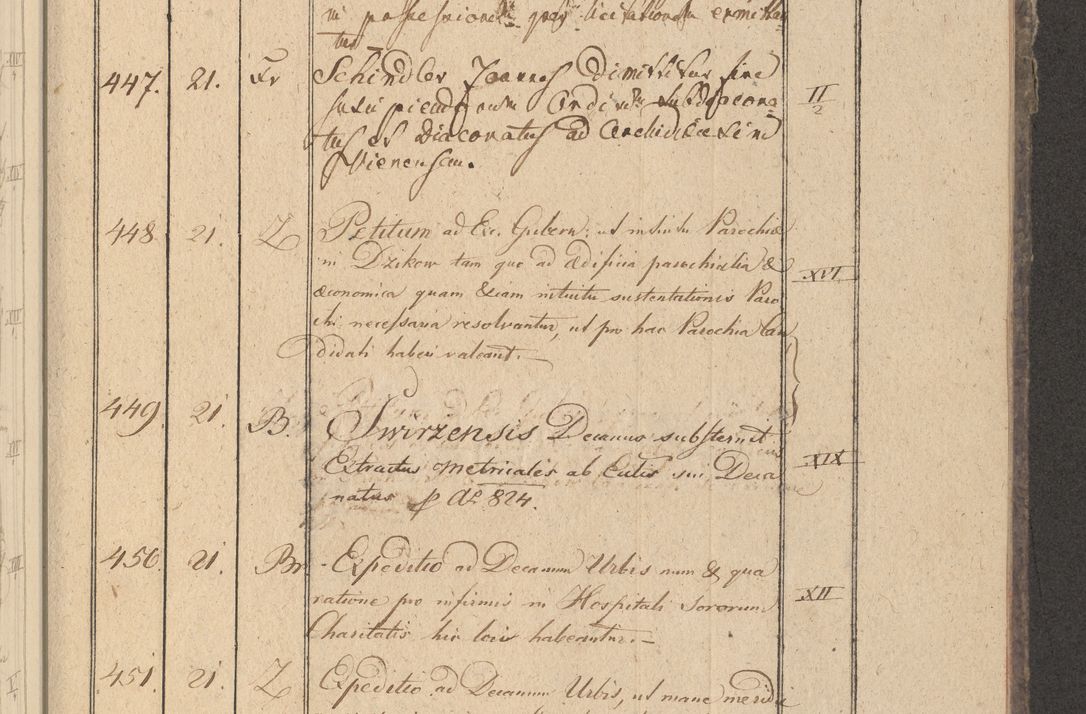 in possessionem licitationem
tur
447. 21. Fr Schindler Joannes Dimittitur sine
Ordinum Subdiacona
tus et Diaconatus ad Archidiœcesim
Vienensem.
II/2
448 21. Z Petitum ad Exc. Gubern. ut intuitu Parochiæ
in Dzikow tam quo ad ædificia parochialia &
œconomica quam Etiam intuitu sustentationis Paro
chi necessaria resolvantur, ut pro hac Parochia Can
didati haberi valeant.
XVI
449. 21 B. Swirzensis Decanus substernit
Extractus Metricales ab Eccliis sui Deca
natus p Ao 824.
XIX
450. 21. Br - Expeditio ad Decanum Urbis num & qua
ratione pro infirmis in Hospitali Sororum
Charitatis hic locis habeantur. -
XII
451. 21. Z Expeditio ad Decanum Urbis, ut mane meridie